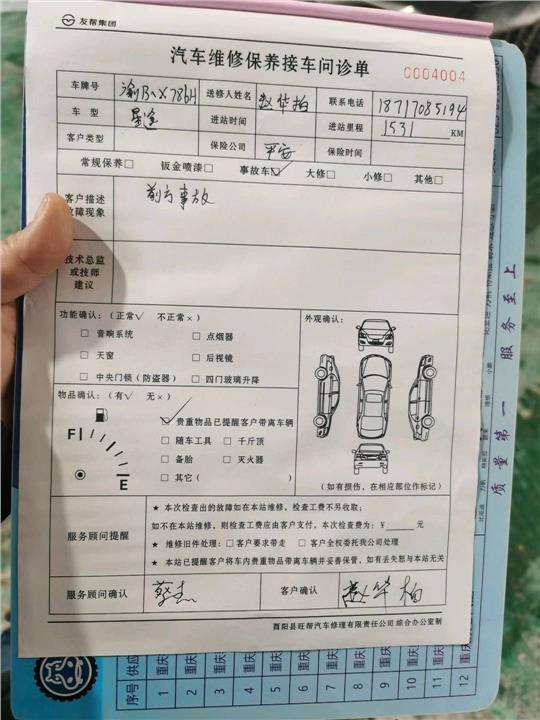 友帮集团
汽车维修保养接车问诊单
0004004
车牌号 送修人姓名 赵华柏 联系电话 18717085194
车 型 星途 进站时间 进站里程 1531 KM
客户类型 保险公司 平安 保险时间
常规保养□ 钣金喷漆□ 事故车☑ 大修□ 小修□ 其他□
客户描述 前方事故
故障现象
技术总监
或技师
建议
功能确认:(正常√ 不正常×) 外观确认:
□ 音响系统 □ 点烟器
□ 天窗 □ 后视镜
□ 中央门锁(防盗器) □ 四门玻璃升降
物品确认:(有√ 无×)
☑ 贵重物品已提醒客户带离车辆
□ 随车工具 □ 千斤顶
□ 备胎 □ 灭火器
□ 其它( )
F
E
(如有损伤,在相应部位作标记)
服务顾问提醒
★ 本次检查出的故障如在本站维修,检查工费不另收取;
如不在本站维修,则检查工费应由客户支付,本次检查费为:¥_____元
★ 维修旧件处理:□客户要求带走 □ 客户全权委托我公司处理
★ 本站已提醒客户将车内贵重物品带离车辆并妥善保管,如有丢失恕与本站无关
服务顾问确认 蔡杰 客户确认 赵华柏
酉阳县旺帮汽车修理有限责任公司 综合办公室制
质量第一 服务至上
序号 供应
1 重庆
2 重庆
3 重庆
4 重庆
5 重庆
6 重庆
7 重庆
8 重庆
9 重庆
10 重庆
11 重庆
12 重庆